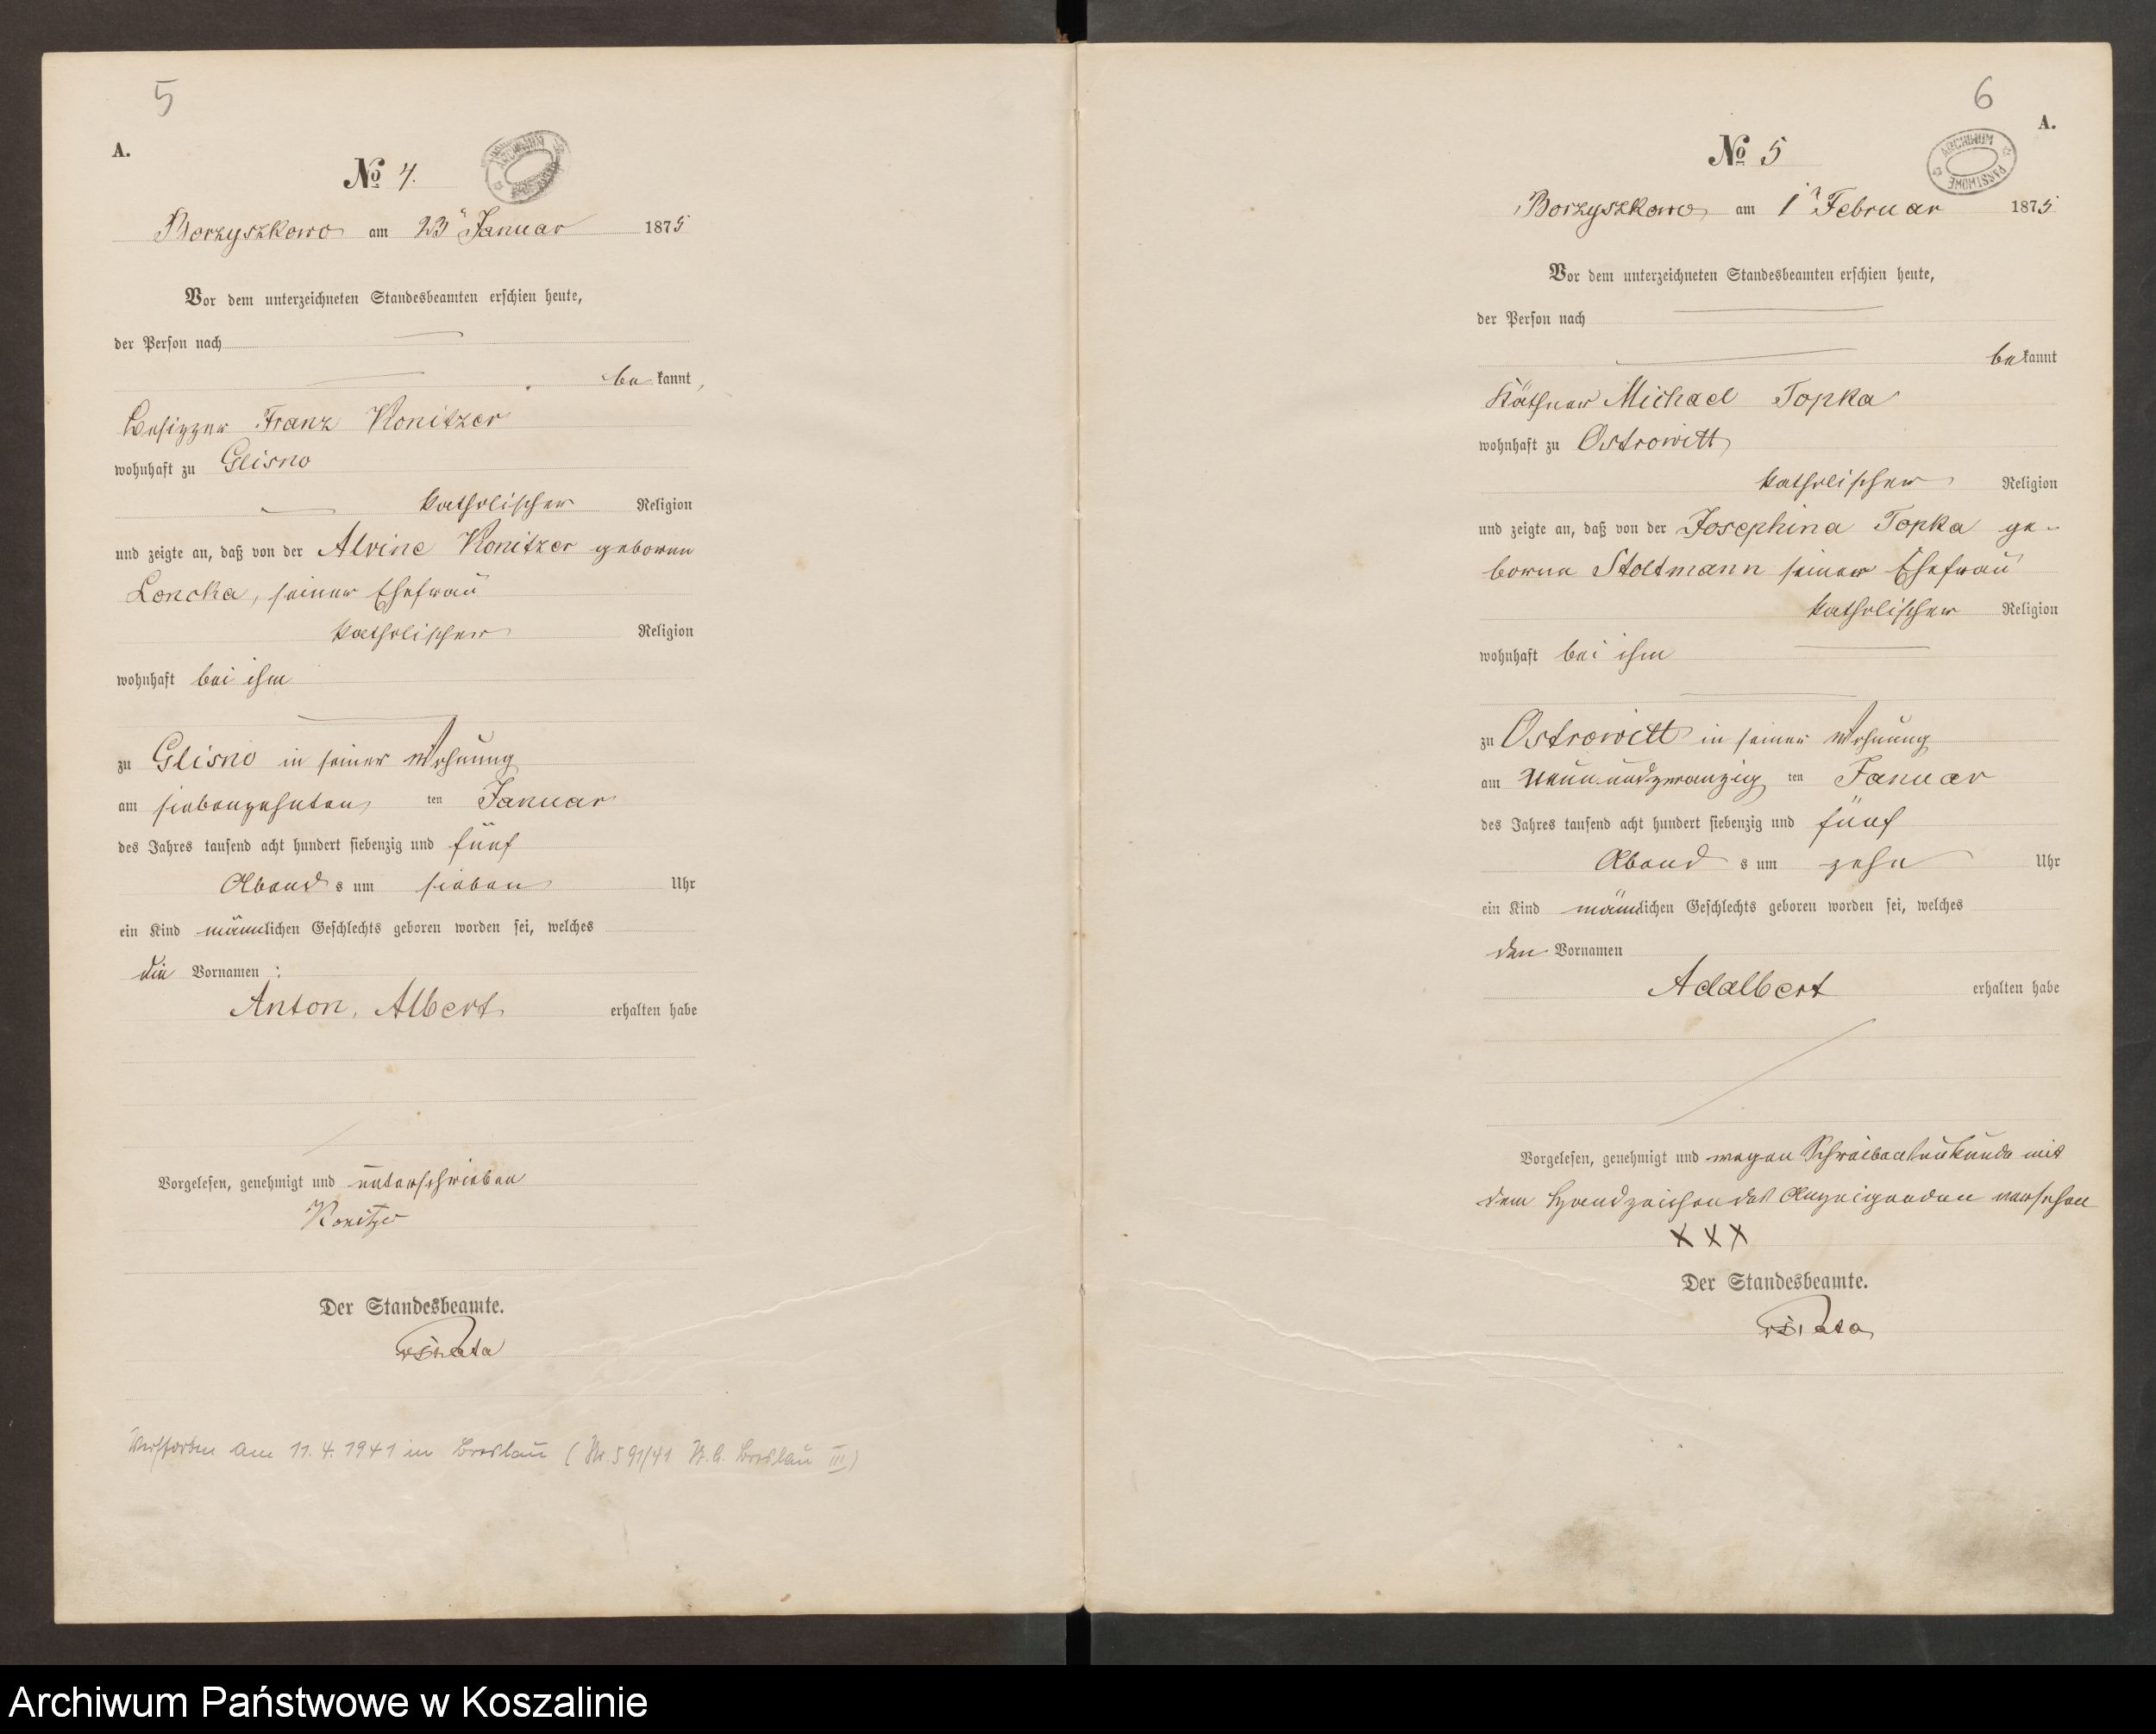 5
A.
№ 4.
ARCHIWUM
Borzyszkowo am 23ⁿ Januar 1875
Vor dem unterzeichneten Standesbeamten erschien heute,
der Person nach
bekannt,
Besitzer Franz Konitzer
wohnhaft zu Glisno
katholischer Religion
und zeigte an, daß von der Alvine Konitzer geborenen
seiner Ehefrau
katholischer Religion
wohnhaft bei ihm
zu Glisno in seiner Wohnung
am siebenzehnten ten Januar
des Jahres tausend acht hundert siebenzig und fünf
Abends um sieben Uhr
ein Kind männlichen Geschlechts geboren worden sei, welches
die Vornamen:
Anton, Albert erhalten habe
Vorgelesen, genehmigt und unterschrieben
Konitzer
Der Standesbeamte.
Verstorben am 11.4.1941 in Breslau (Nr. 591/41 St. A. Breslau III)
6
A.
№ 5
ARCHIWUM PAŃSTWOWE
Borzyszkowo am 1ⁿ Februar 1875
Vor dem unterzeichneten Standesbeamten erschien heute,
der Person nach
bekannt
Käthner Michael Topka
wohnhaft zu Ostrowitt
katholischer Religion
und zeigte an, daß von der Josephina Topka ge-
borne Stoltmann seiner Ehefrau
katholischer Religion
wohnhaft bei ihm
zu Ostrowitt in seiner Wohnung
am neun und zwanzig ten Januar
des Jahres tausend acht hundert siebenzig und fünf
Abends um zehn Uhr
ein Kind männlichen Geschlechts geboren worden sei, welches
den Vornamen
Adalbert erhalten habe
Vorgelesen, genehmigt und wegen Schreibensunkunde mit
dem Handzeichen des Anzeigenden versehen
XXX
Der Standesbeamte.
Archiwum Państwowe w Koszalinie